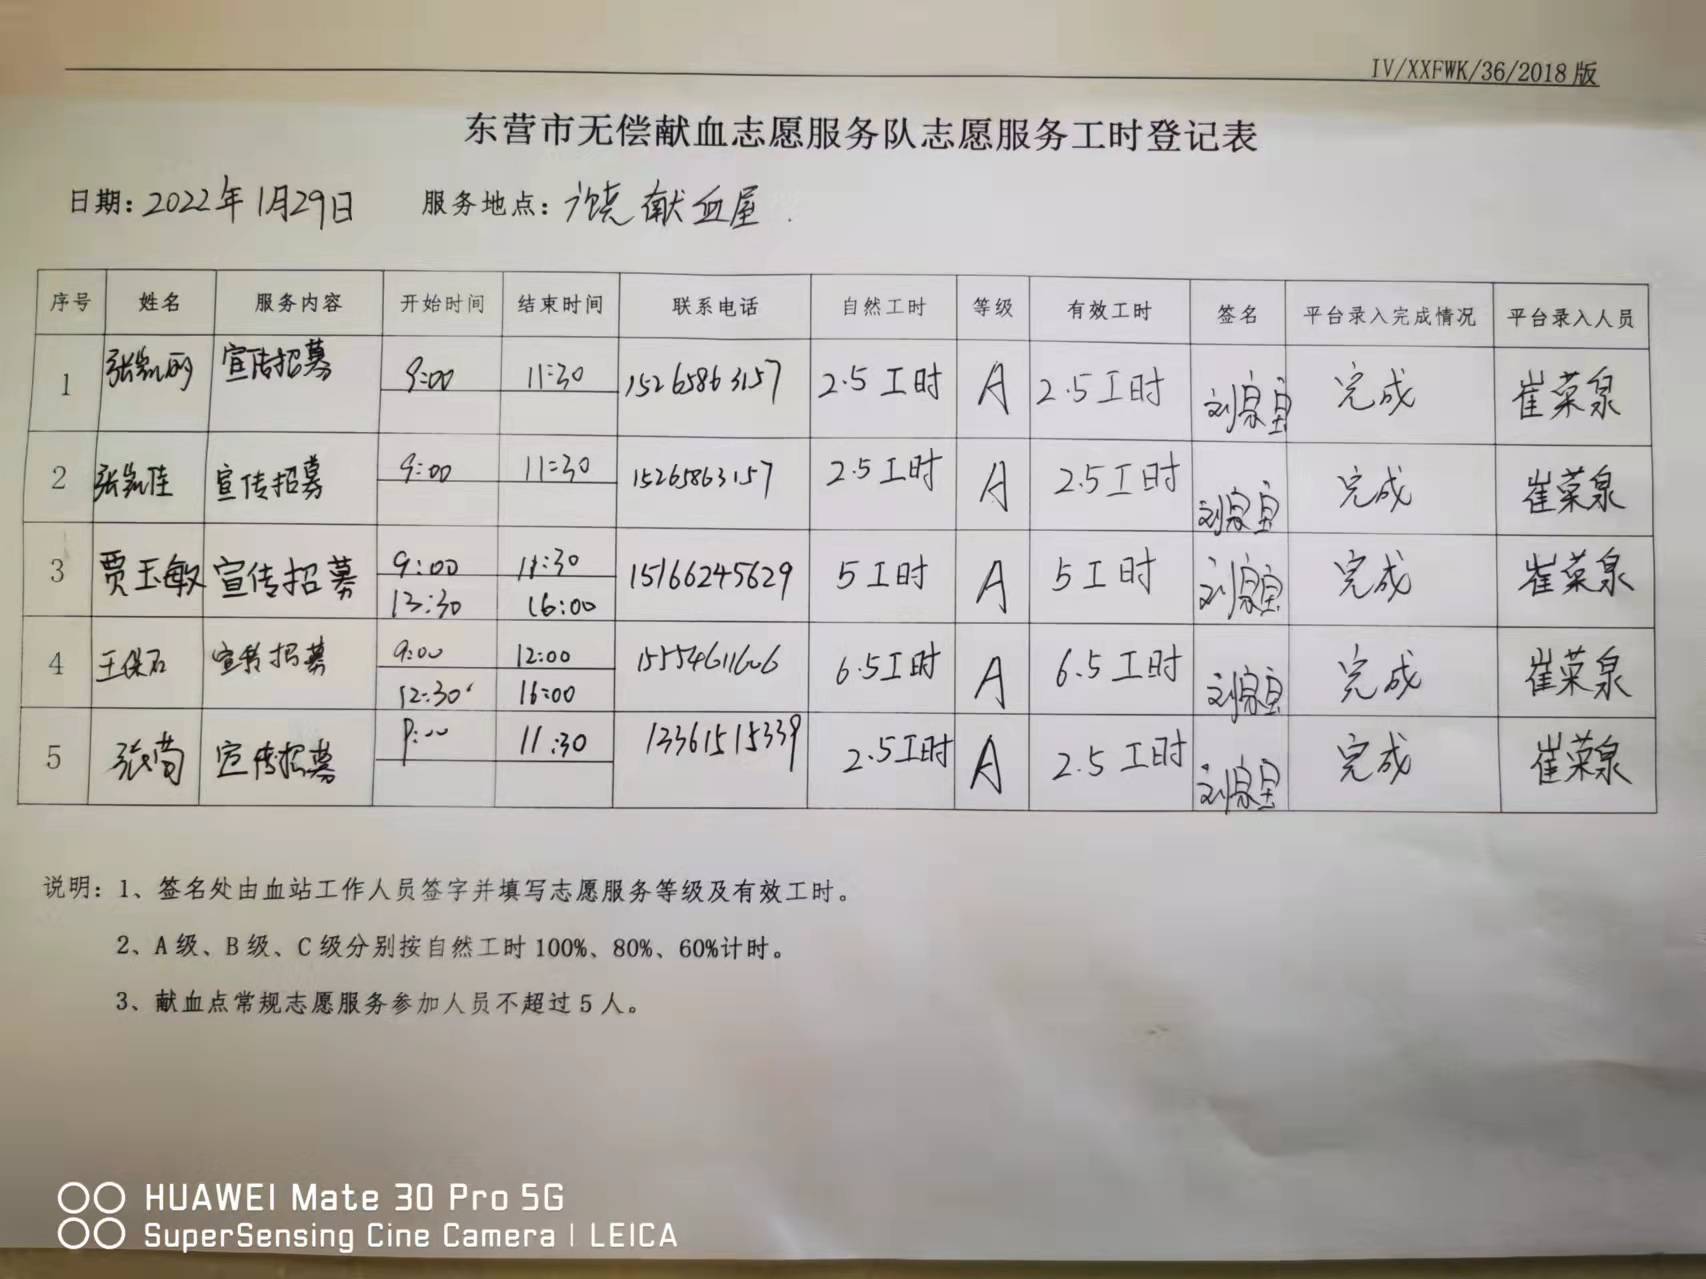 IV/XXFWK/36/2018版
东营市无偿献血志愿服务队志愿服务工时登记表
日期:2022年1月29日 服务地点:饶献血屋
序号 姓名 服务内容 开始时间 结束时间 联系电话 自然工时 等级 有效工时 签名 平台录入完成情况 平台录入人员
1 张凯丽 宣传招募 9:00 11:30 15265863157 2.5工时 A 2.5工时 完成 崔荣泉
2 张凯佳 宣传招募 9:00 11:30 15265863157 2.5工时 A 2.5工时 完成 崔荣泉
3 贾玉敏 宣传招募 9:00 11:30 15166245629 5工时 A 5工时 完成 崔荣泉
13:30 16:00
4 王保石 宣传招募 9:00 12:00 15554611606 6.5工时 A 6.5工时 完成 崔荣泉
12:30 16:00
5 张菊 宣传招募 9:00 11:30 13361515339 2.5工时 A 2.5工时 完成 崔荣泉
说明:1、签名处由血站工作人员签字并填写志愿服务等级及有效工时。
2、A级、B级、C级分别按自然工时100%、80%、60%计时。
3、献血点常规志愿服务参加人员不超过5人。
HUAWEI Mate 30 Pro 5G
SuperSensing Cine Camera | LEICA